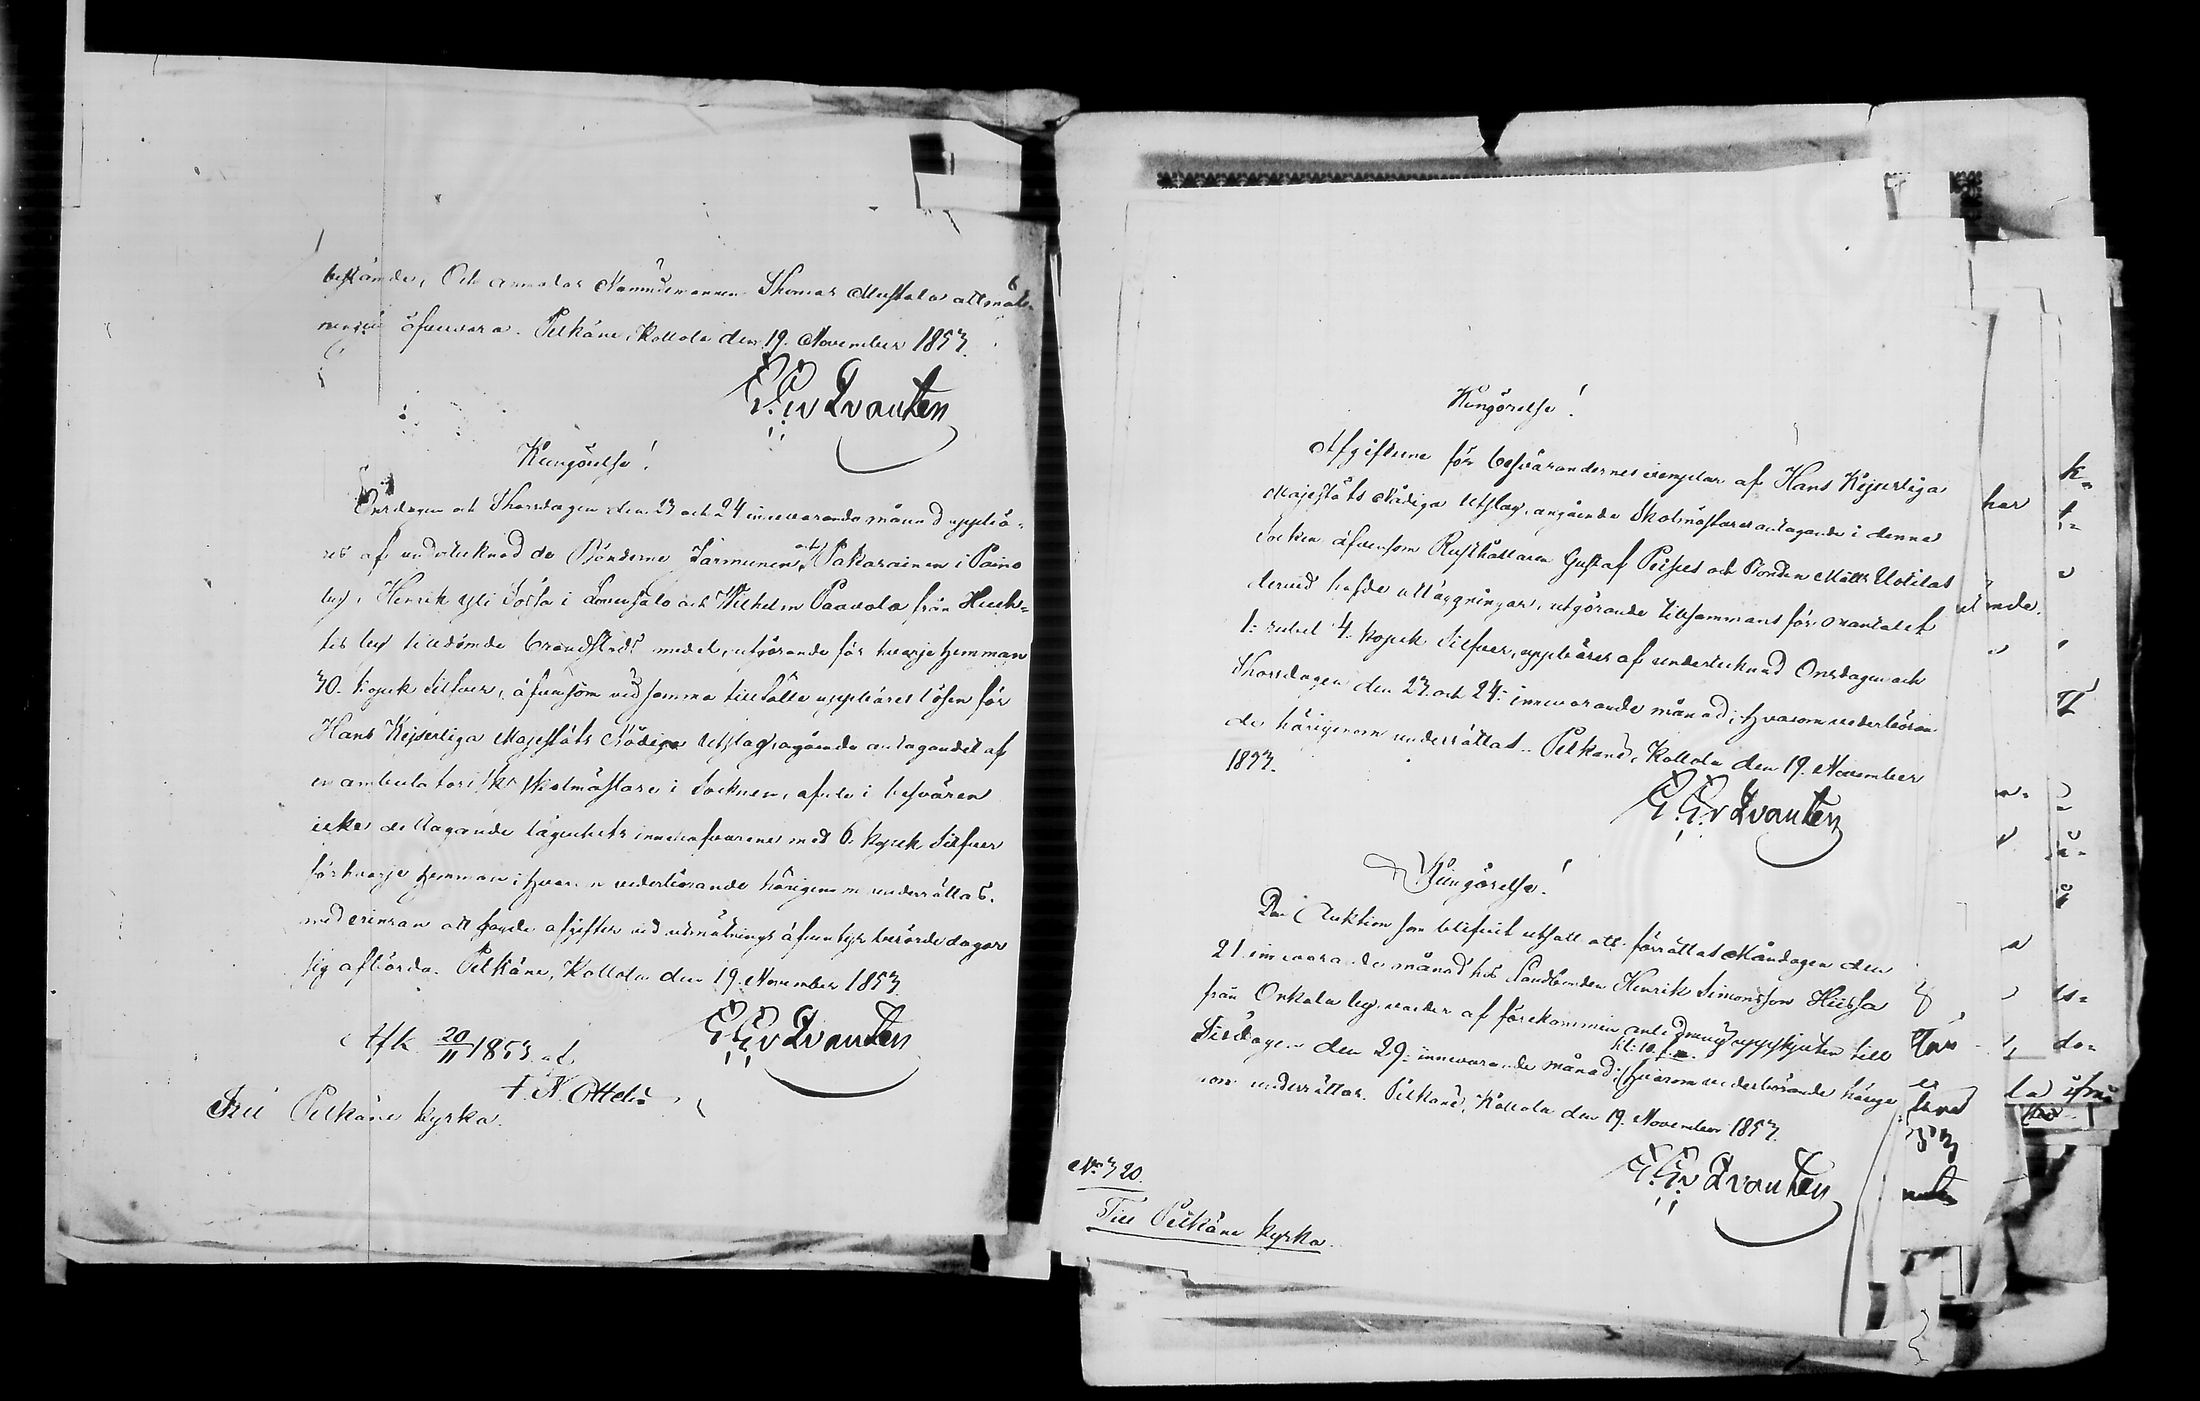 bestånde, Och anmodas Nämndemannen Thomas Mustala att mät-
ningen öfvervara. Pelkäne, Kollola den 19. November 1853.
E. G. v Qvanten
Kungörelse!
Onsdagen och Thorsdagen den 23 och 24 innevarande månad uppbä-
res af undertecknad de Bönderne Tarmunen och Pakarainen i Paino
by, Henrik Yli Sossa i och Wilhelm Paavola från Huh-
tis by tilldömde brandstods medel, utgörande för hvarje hemman
30. kopek Silfver, äfvensom vid samma tillfälle uppbäres lösen för
Hans Kejserliga Majestäts Nådiga Utslag angående antagandet af
en ambulatorisk Skolmästare i Socknen, af de i besvären
icke deltagande lägenhets innehafvarene med 6. kopek Silfver
för hvarje hemman; hvarom vederbörande härigenom underrättas,
med erinran att sagde afgifter vid utmätnings äfventyr berörde dagar
sig afbörda. Pelkäne, Kollola den 19. November 1853.
E. G. v Qvanten
Afk. 20/11 1853 af
F. N. Ottelin
Till Pelkäne kyrka.
Kungörelse!
Afgifterne för besvärandernes exemplar af Hans Kejserliga
Majestäts Nådiga Utslag, angående Skolmästares antagande i denna
Socken äfvensom Rusthållaren Gustaf Peijus och Bonden Matts Uotilas
dervid hafde utläggningar, utgörande tillsammans för
1. rubel 4. kopek Silfver, uppbäres af undertecknad Onsdagen och
Thorsdagen den 23 och 24. innevarande månad; hvarom vederböran
de härigenom underrättas. Pelkäne, Kollola den 19. November
1853.
E. G. v Qvanten
Kungörelse!
Den Auktion som blifvit utsatt att förrättas Måndagen den
21 innevarande månad hos Landbonden Henrik Simonsson Hiissa
från Onkala by, varder af förekommen anledning uppskjuten till
kl. 10 f. m.
Tisdagen den 29. innevarande månad; hvarom vederbörande härige
nom underrättas. Pelkäne, Kollola den 19. November 1853.
E. G. v Qvanten
No 320.
Till Pelkäne kyrka.